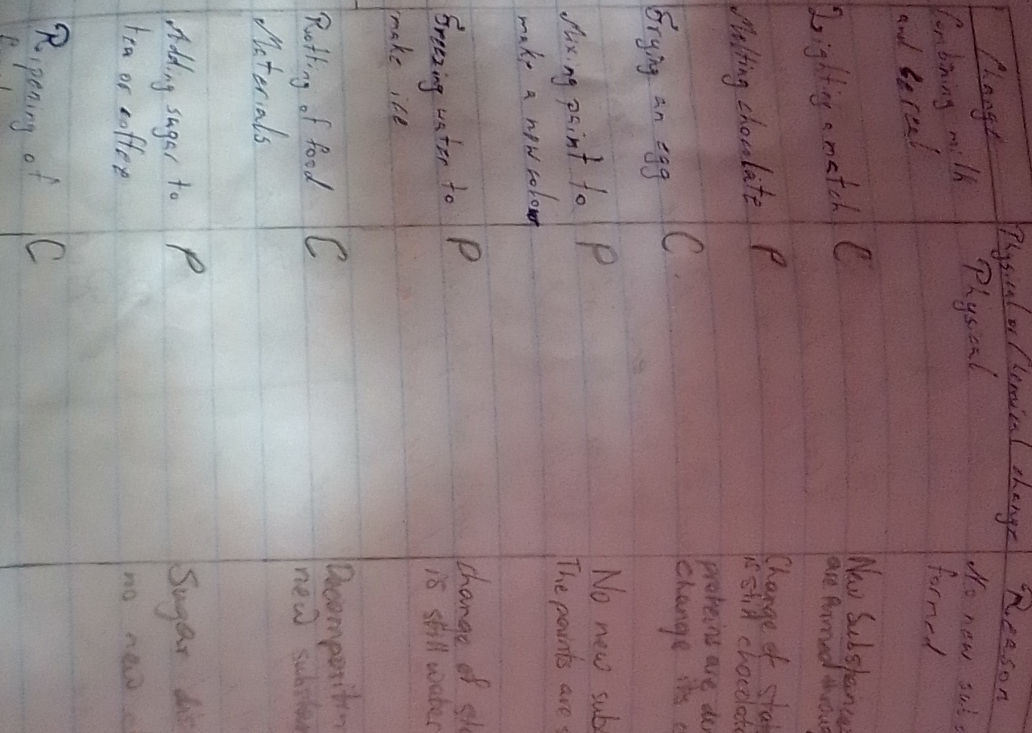 Change Physical or Chemical change Reason
Combining milk Physical No new subs
and cereal formed
Lighting a match C New Substances
are formed throu
Melting chocolate P Change of stat
is still chocolate
Frying an egg C proteins are de
change its c
Mixing paint to P No new subs
make a new colour The paints are s
Freezing water to P change of sta
make ice is still water
Rotting of food C Decomposition
Materials new substan
Adding sugar to P Sugar dis
tea or coffee no new
Ripening of C